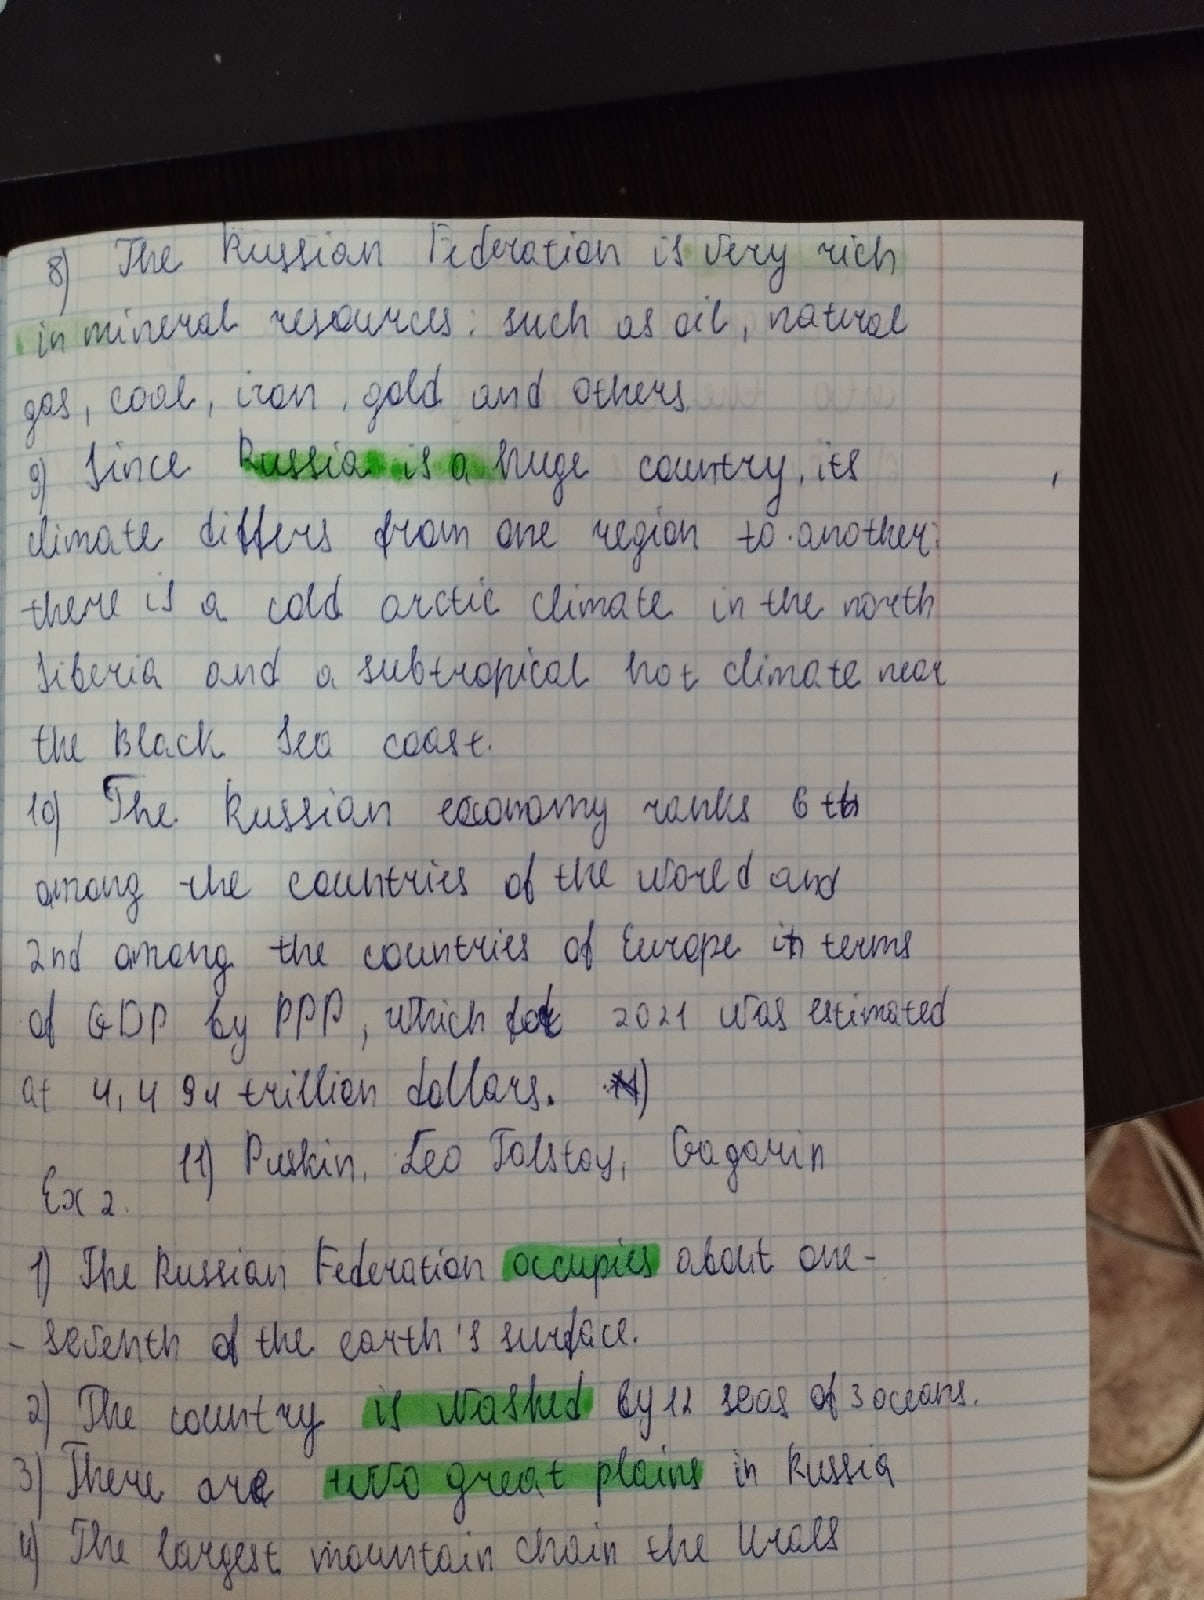 8) The Russian Federation is very rich
in mineral resources: such as oil, natural
gas, coal, iron, gold and others.
9) Since Russia is a huge country, its
climate differs from one region to another:
there is a cold arctic climate in the north
Siberia and a subtropical hot climate near
the Black Sea coast.
10) The Russian economy ranks 6 th
among the countries of the world and
2nd among the countries of Europe in terms
of GDP by PPP, which for 2021 was estimated
at 4,494 trillion dollars.
11) Puskin, Leo Tolstoy, Gagarin
Ex 2.
1) The Russian Federation occupies about one-
- seventh of the earth's surface.
2) The country is washed by 12 seas of 3 oceans.
3) There are two great plains in Russia
4) The largest mountain chain the Urals